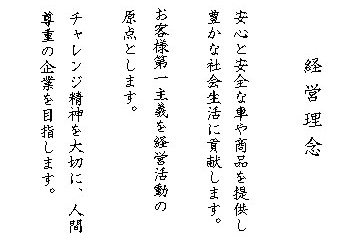 経営理念
安心と安全な車や商品を提供し
豊かな社会生活に貢献します。
お客様第一主義を経営活動の
原点とします。
チャレンジ精神を大切に、人間
尊重の企業を目指します。